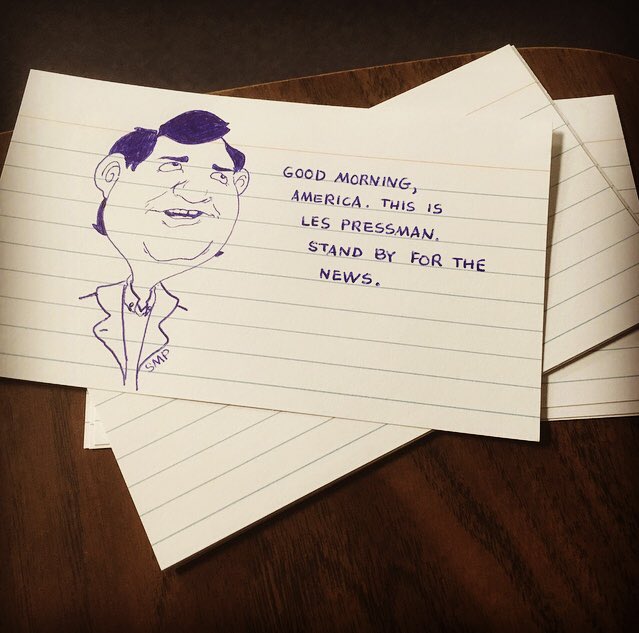 GOOD MORNING,
AMERICA. THIS IS
LES PRESSMAN.
STAND BY FOR THE
NEWS.
SMP